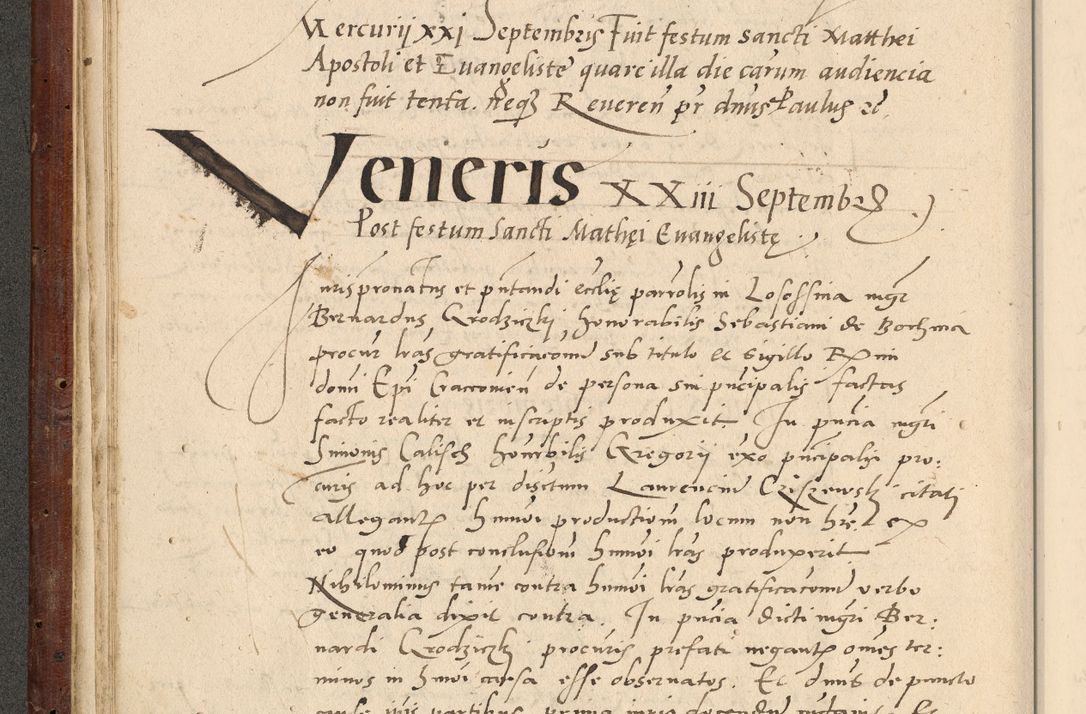 Mercurii xxi Septembris Fuit festum sancti Matthei
Apostoli et Euangeliste quare illa die carum audiencia
non fuit tenta. neqz Reueren pr dnus Paulus etc.
Veneris XXiii Septembr
Post festum Sancti Mathei Euangeliste
Iuris pronatus et pntandi ecclie parrolis in Lososina mgr
Bernardus Grodziczki, honorabilis Sebastiani de Bochnia
procur lras gratificacom sub titulo et sigillo Rx mi
domi Epi Cracouien de persona sui pncipalis factas
facto realiter et inscriptis produxit In pncia mgri
Simonis Calisch honorbilis Gregorii ex pncipalis pro:
curis ad hoc per discretum Laurencium Criszewski citati
allegantz hmoi productiom locum non hre ex
eo quod post conclusiom hmoi lras produxerit
Nihilominus tame contra hmoi lras gratificacom verbo
generalia dixit contra. In pncia dicti mgri Ber:
nardi Grodziczki procuris prefati negantz omes ter:
minos in hmoi causa esse obseruatos. Et dnus de puncto
cause iuris partibus